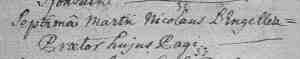 Septimâ Martii Nicolaus L'Engellen=
Prætor hujus Pagi